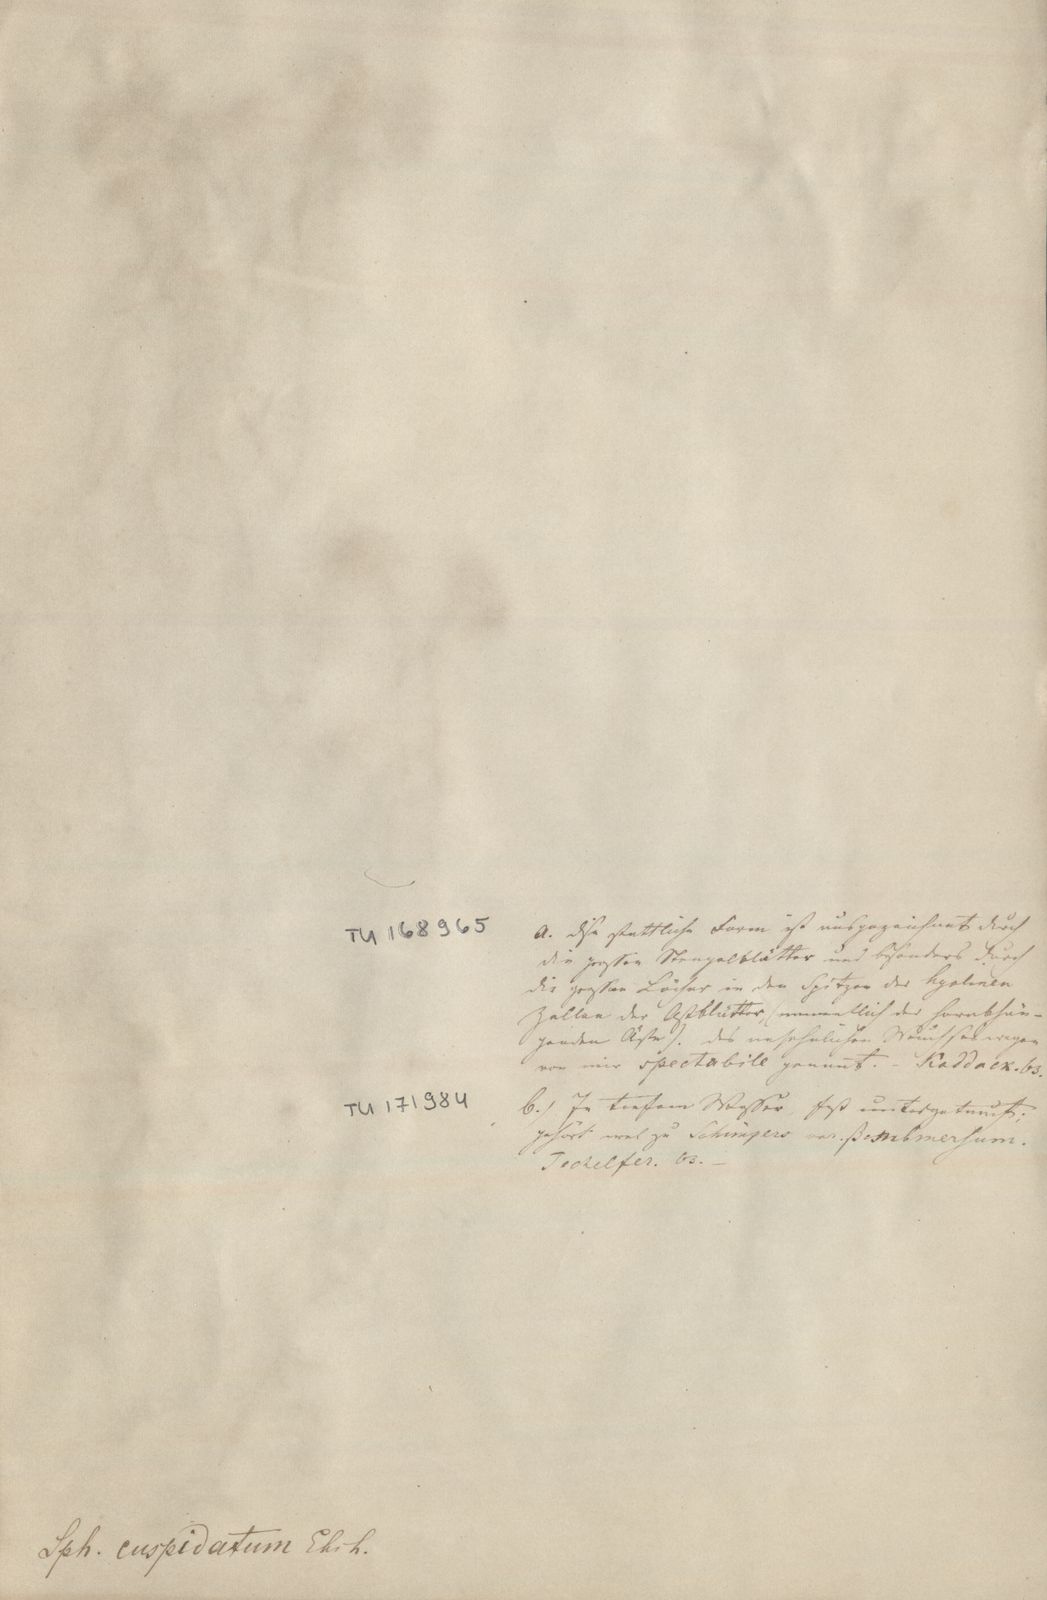 TU 168965
a. diese stattliche Form ist ausgezeichnet durch
die grossen Stengelblätter und besonders durch
die grossen Löcher in den Spitzen der hyalinen
Zellen der Astblätter, (namentlich der herabhän-
genden Äste). des ansehnlichen Wuchses wegen
von mir spectabile genannt. - Kaddack.
TU 171984
b.) In tiefem Wasser, fast untergetaucht;
gehört wol zu Schimpers var. β submersum.
Techelfer. –
Sph. cuspidatum Ehrh.